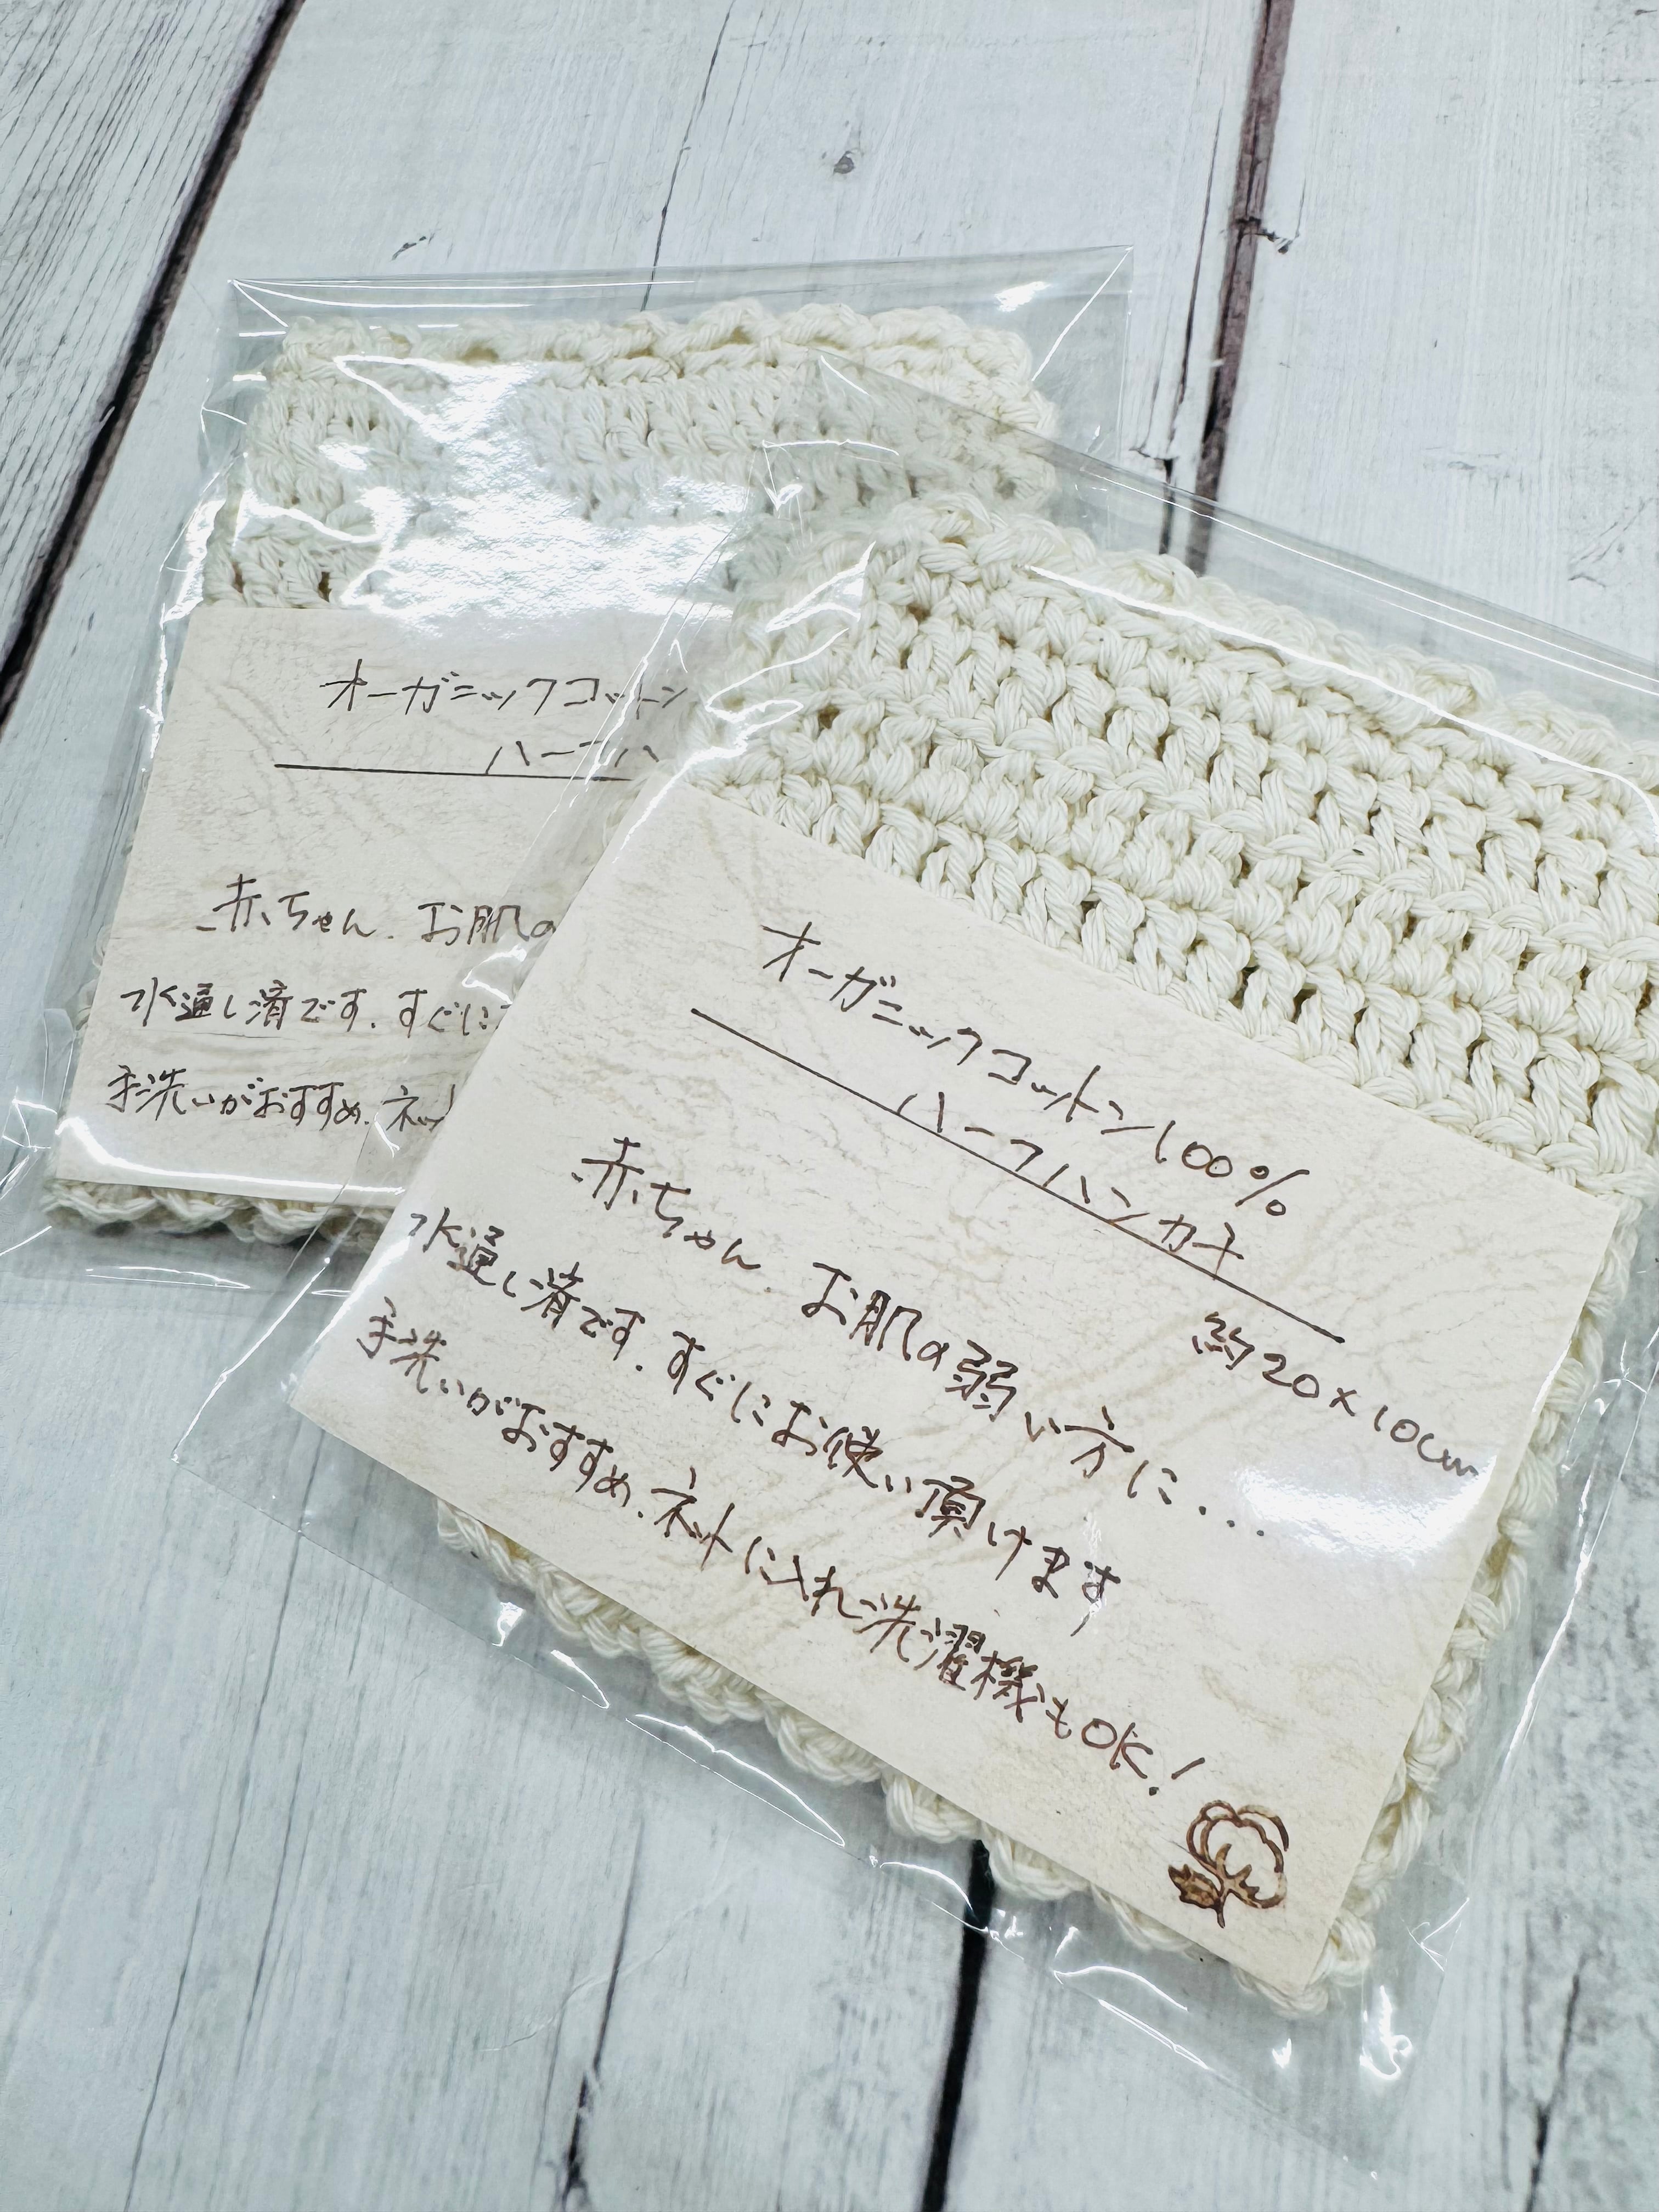 オーガニックコットン
ハーフハ
赤ちゃん.お肌の
水通し済です.すぐに
手洗いがおすすめ.ネット
オーガニックコットン100%
ハーフハンカチ
約20×10cm
赤ちゃん.お肌の弱い方に...
水通し済です.すぐにお使い頂けます
手洗いがおすすめ.ネットに入れ洗濯機もOK!